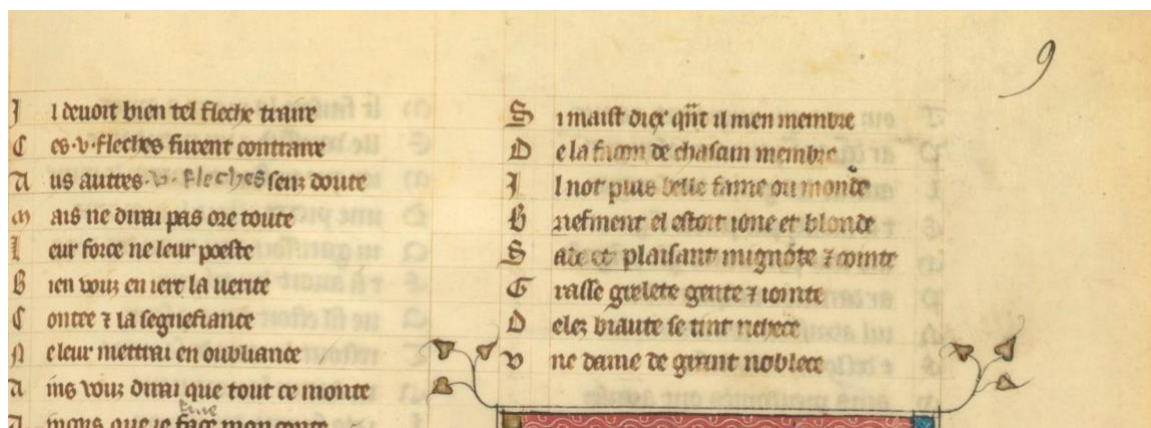 9
I l deuoit bien tel fleche traire
C es .v. fleches furent contraire
A us autres .v. fleches senz doute
M ais ne dirai pas ore toute
L eur force ne leur poeste
B ien vouz en iert la uerite
C ontee ⁊ la segnefiance
N e leur mettrai en oubliance
A ins vouz dirai que tout ce monte
A incois que je face mon conte
S i maist diex qñt il men membre
D e la facon de chascun membre
I l not plus belle fame ou monde
B riefment el estoit ione et blonde
S ade et plaisant mignote ⁊ cointe
G rasse grelete gente ⁊ iointe
D elez biaute se tint richece
V ne dame de grant noblece